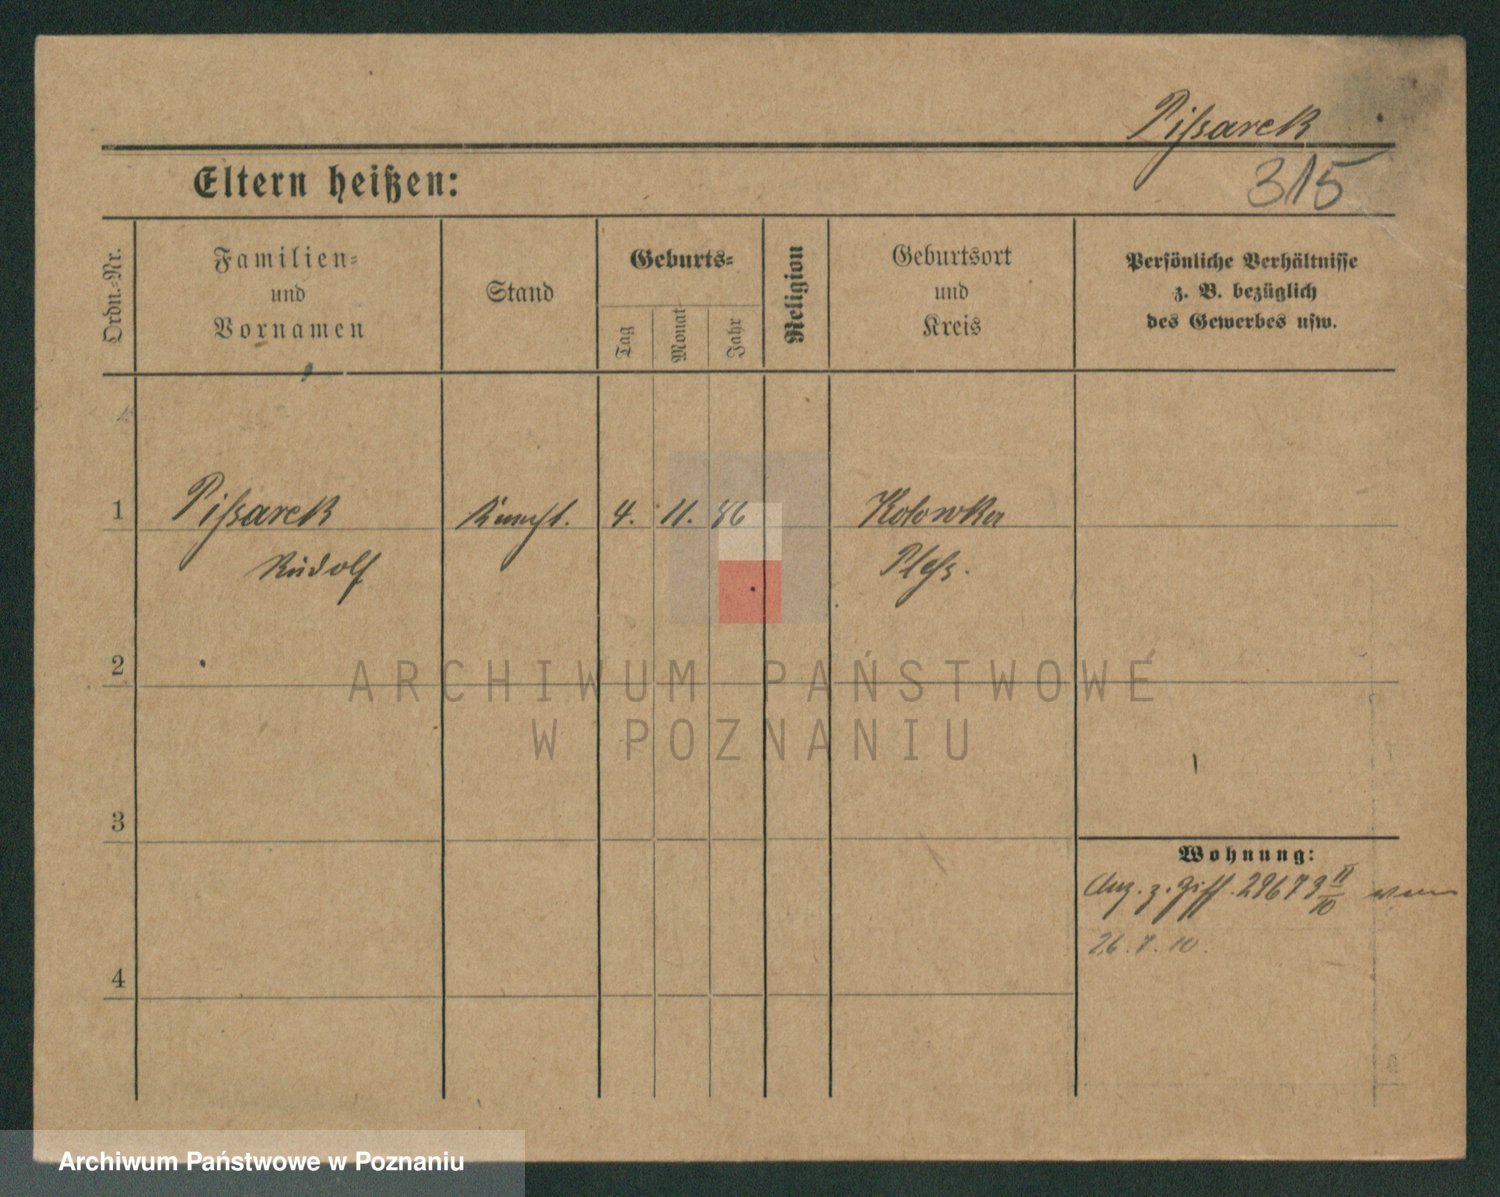 Pißarek
315
Eltern heißen:
Ordn.-Nr.
Familien-
und
Vornamen
Stand
Geburts-
Tag
Monat
Jahr
Religion
Geburtsort
und
Kreis
Persönliche Verhältnisse
z. B. bezüglich
des Gewerbes usw.
1
Pißarek
4. 11. 86
Kolowka
Rudolf
Pleß.
2
ARCHIWUM PAŃSTWOWE
W POZNANIU
3
Wohnung:
Anz. z. Ziff. 29679 II/10 vom
26. 7. 10.
4
Archiwum Państwowe w Poznaniu